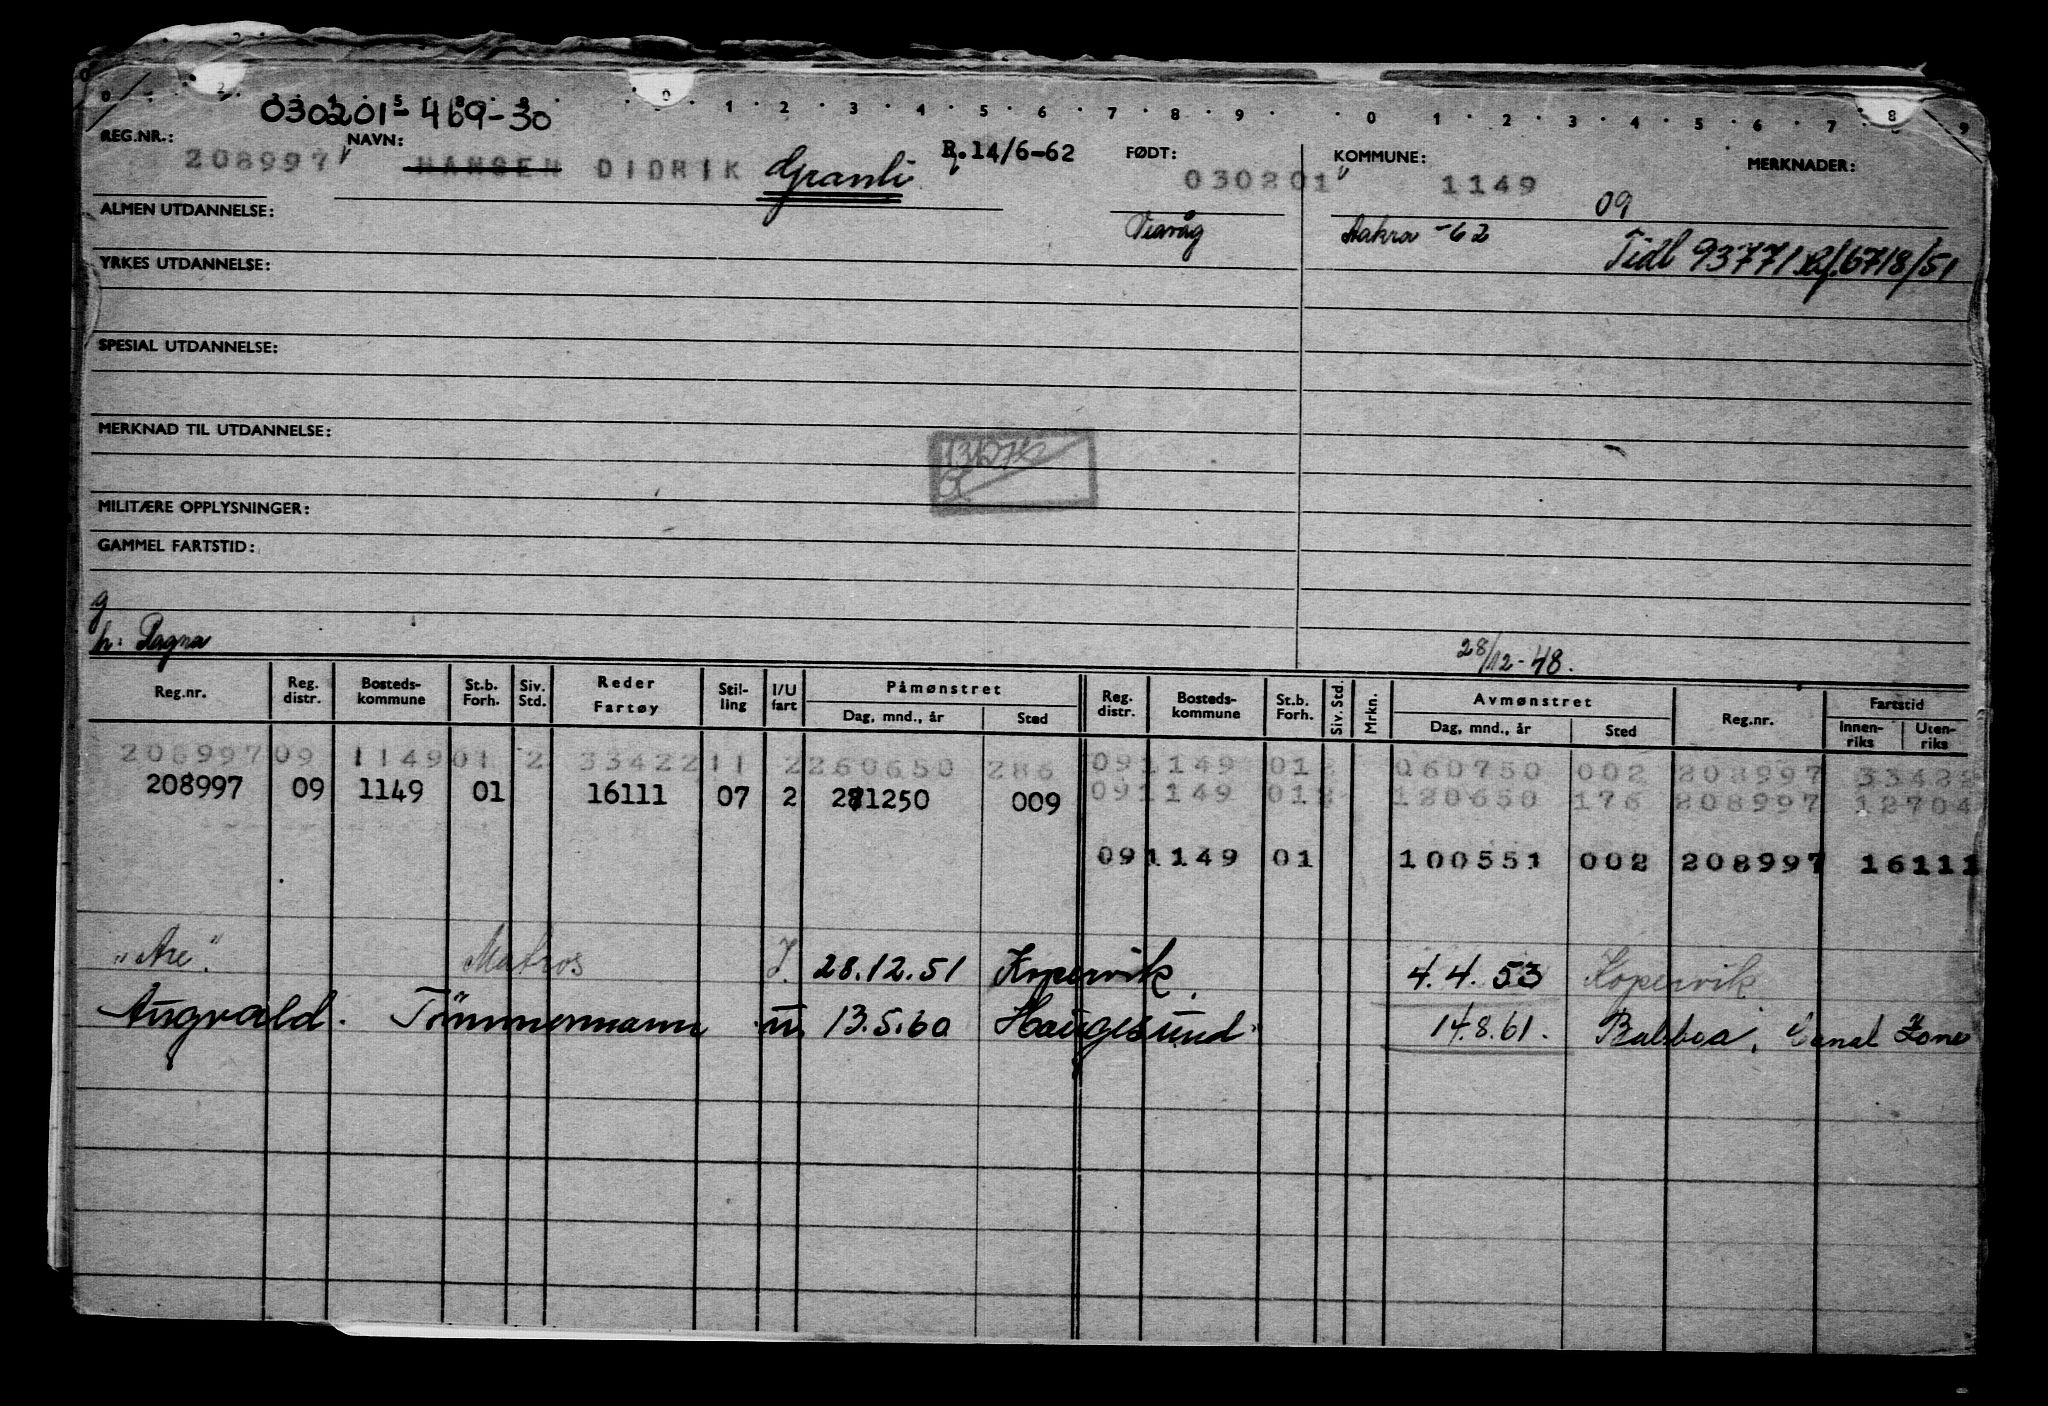 030201-469-30
REG.NR.: 208997 NAVN: HANSEN DIDRIK Granli R. 14/6-62 FØDT: 030201 KOMMUNE: 1149 09 MERKNADER:
ALMEN UTDANNELSE: Veavåg Aakra -62 Tidl 93771
YRKES UTDANNELSE:
SPESIAL UTDANNELSE:
MERKNAD TIL UTDANNELSE:
MILITÆRE OPPLYSNINGER:
GAMMEL FARTSTID:
g
h: Ragna 28/12-48.
Reg.nr. Reg. distr. Bosteds-kommune St.b. Forh. Siv. Std. Reder Fartøy Stil-ling I/U fart Påmønstret Dag, mnd., år Sted Reg. distr. Bosteds-kommune St.b. Forh. Siv. Std. Mrkn. Avmønstret Dag, mnd., år Sted Reg.nr. Fartstid Innen-riks Uten-riks
208997 09 1149 01 2 33422 11 2 260650 286 09 1149 01 2 060750 002 208997 33422
208997 09 1149 01 16111 07 2 281250 009 09 1149 01 2 120650 176 208997 12704
09 1149 01 100551 002 208997 16111
"Are". Matros I. 28.12.51 Kopervik. 4.4.53 Kopervik
Augvald. Tömmermann u. 13.5.60 Haugesund 14.8.61. Balboa, Canal Zone